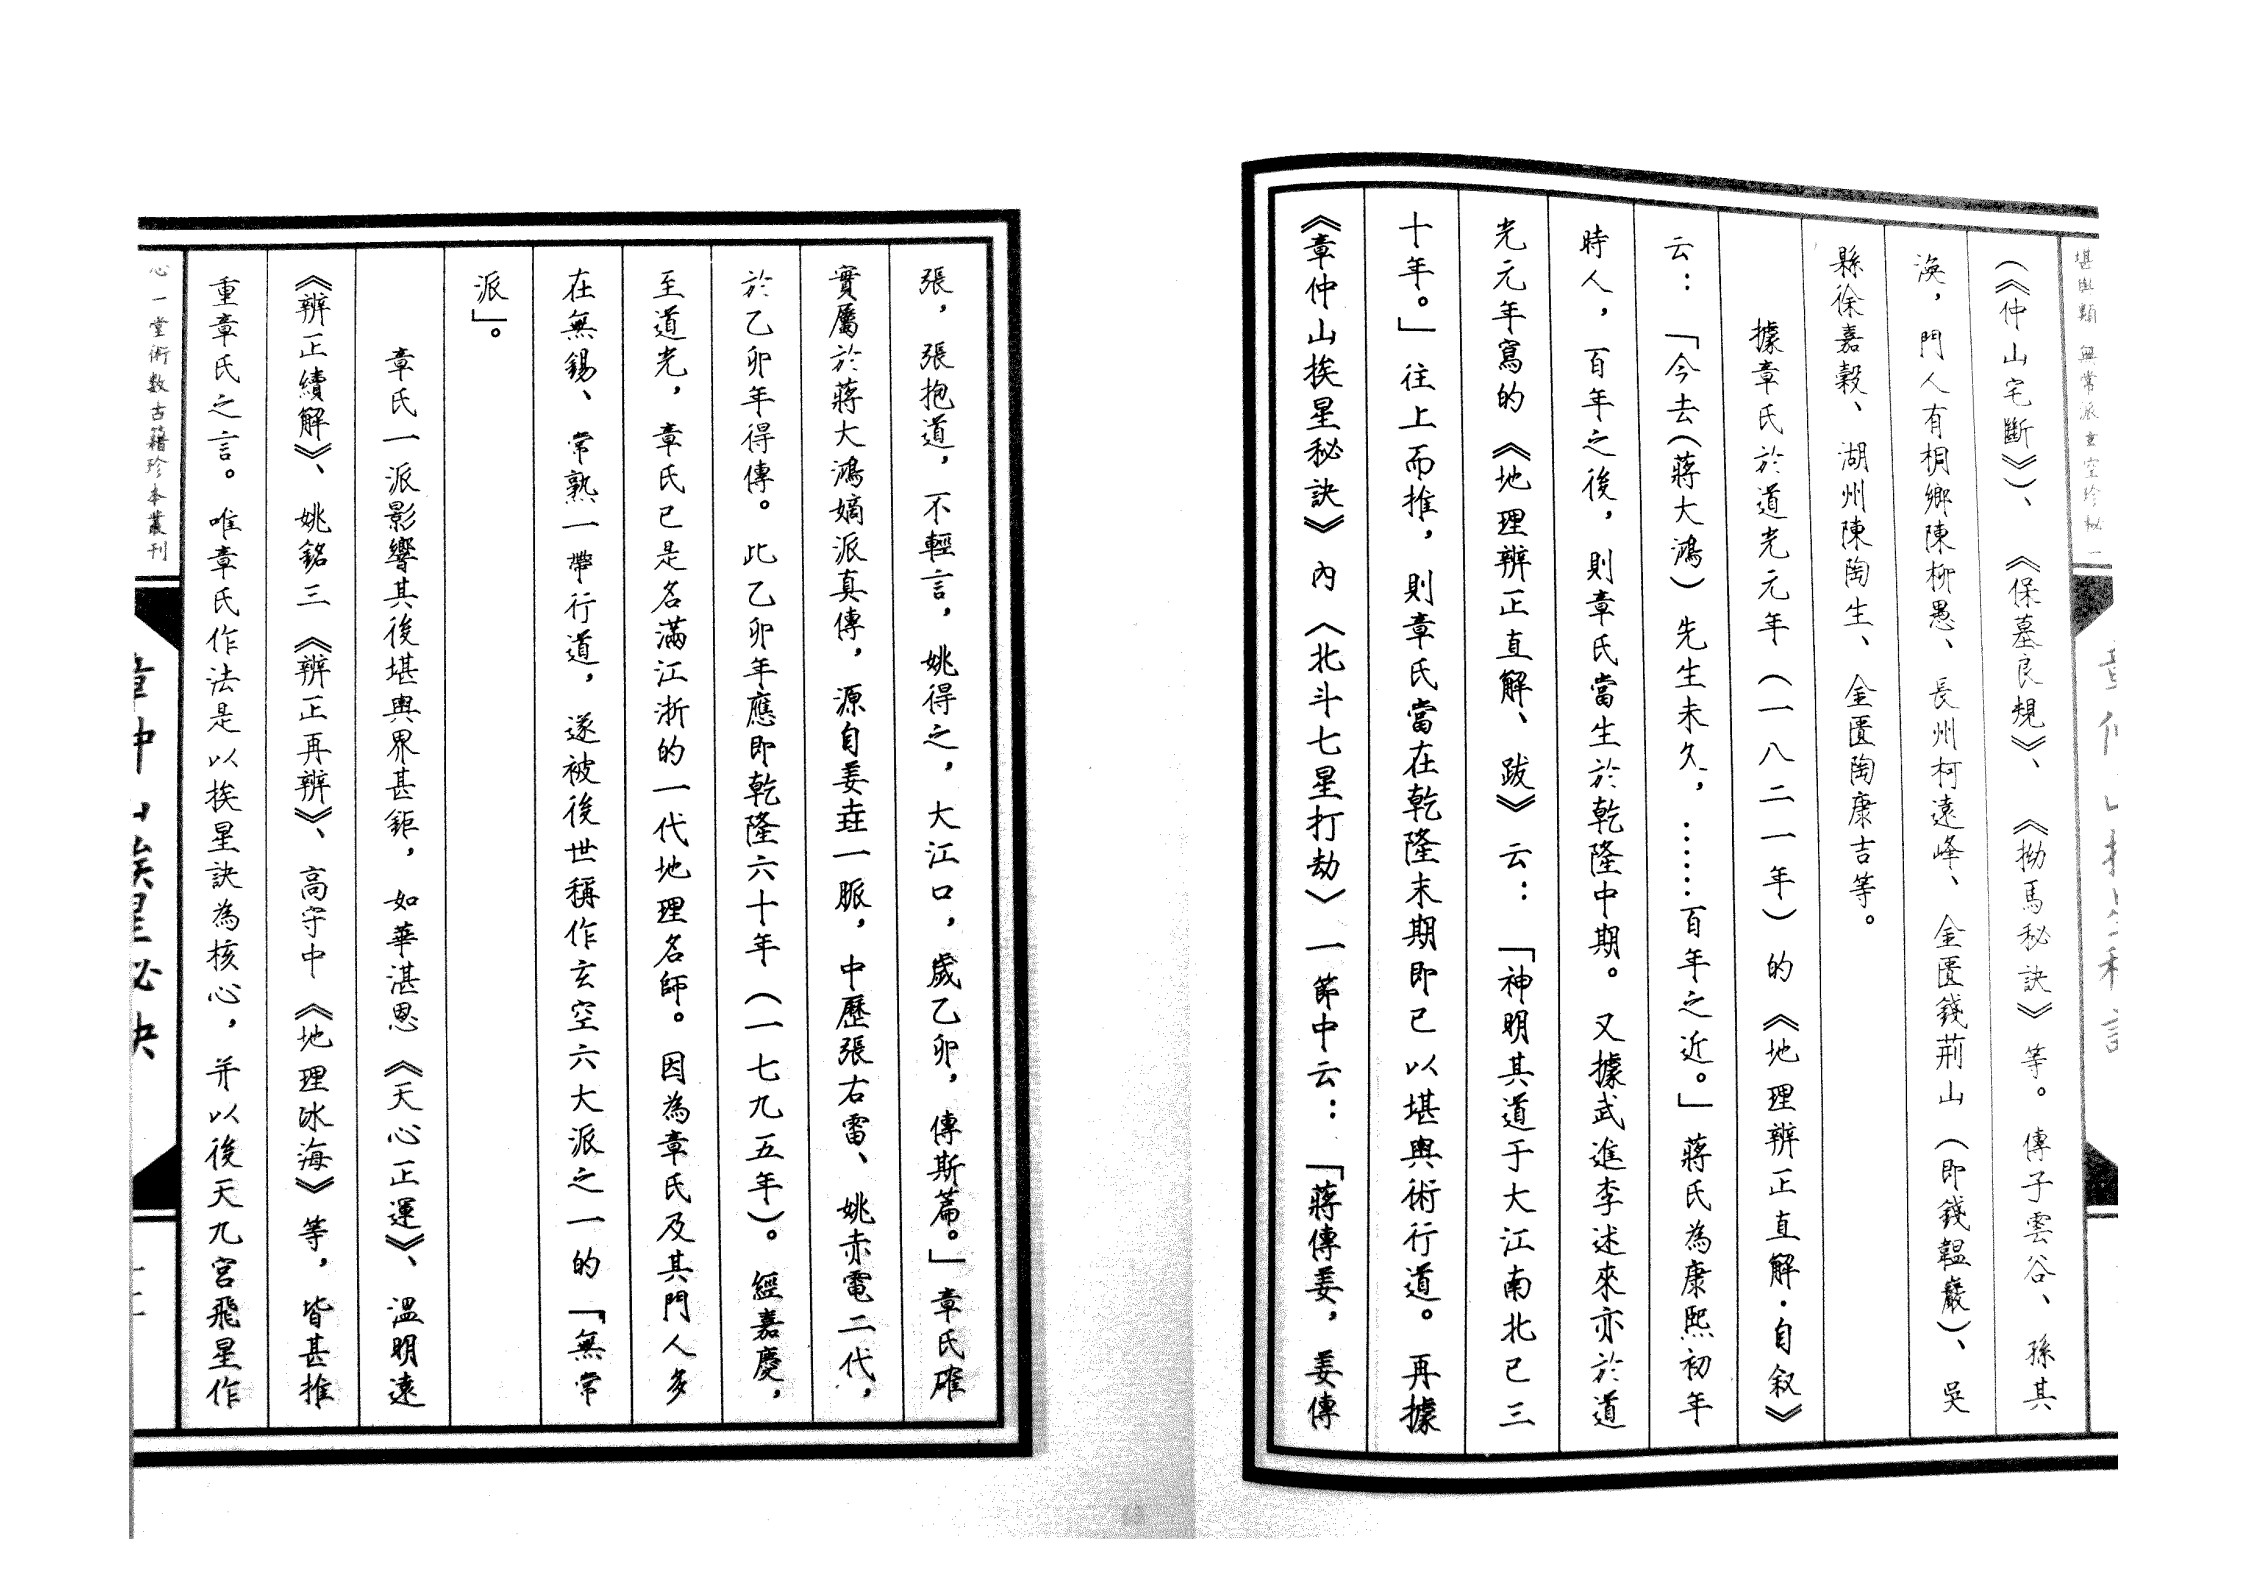 堪輿類 無常派玄空珍秘 一
《仲山宅斷》)、《保墓良規》、《拗馬秘訣》等。傳子雲谷、孫其
渙,門人有桐鄉陳柳愚、長州柯遠峰、金匱錢荊山(即錢韞巖)、吳
縣徐嘉穀、湖州陳陶生、金匱陶康吉等。
據章氏於道光元年(一八二一年)的《地理辨正直解·自敘》
云:「今去(蔣大鴻)先生未久,……百年之近。」蔣氏為康熙初年
時人,百年之後,則章氏當生於乾隆中期。又據武進李述來亦於道
光元年寫的《地理辨正直解、跋》云:「神明其道于大江南北已三
十年。」往上而推,則章氏當在乾隆末期即已以堪輿術行道。再據
《章仲山挨星秘訣》內〈北斗七星打劫〉一節中云:「蔣傳姜,姜傳
張,張抱道,不輕言,姚得之,大江口,歲乙卯,傳斯篇。」章氏確
實屬於蔣大鴻嫡派真傳,源自姜垚一脈,中歷張右雷、姚赤電二代,
於乙卯年得傳。此乙卯年應即乾隆六十年(一七九五年)。經嘉慶,
至道光,章氏已是名滿江浙的一代地理名師。因為章氏及其門人多
在無錫、常熟一帶行道,遂被後世稱作玄空六大派之一的「無常
派」。
章氏一派影響其後堪輿界甚鉅,如華湛恩《天心正運》、溫明遠
《辨正續解》、姚銘三《辨正再辨》、高守中《地理冰海》等,皆甚推
重章氏之言。唯章氏作法是以挨星訣為核心,并以後天九宮飛星作
心一堂術數古籍珍本叢刊
章仲山挨星秘訣